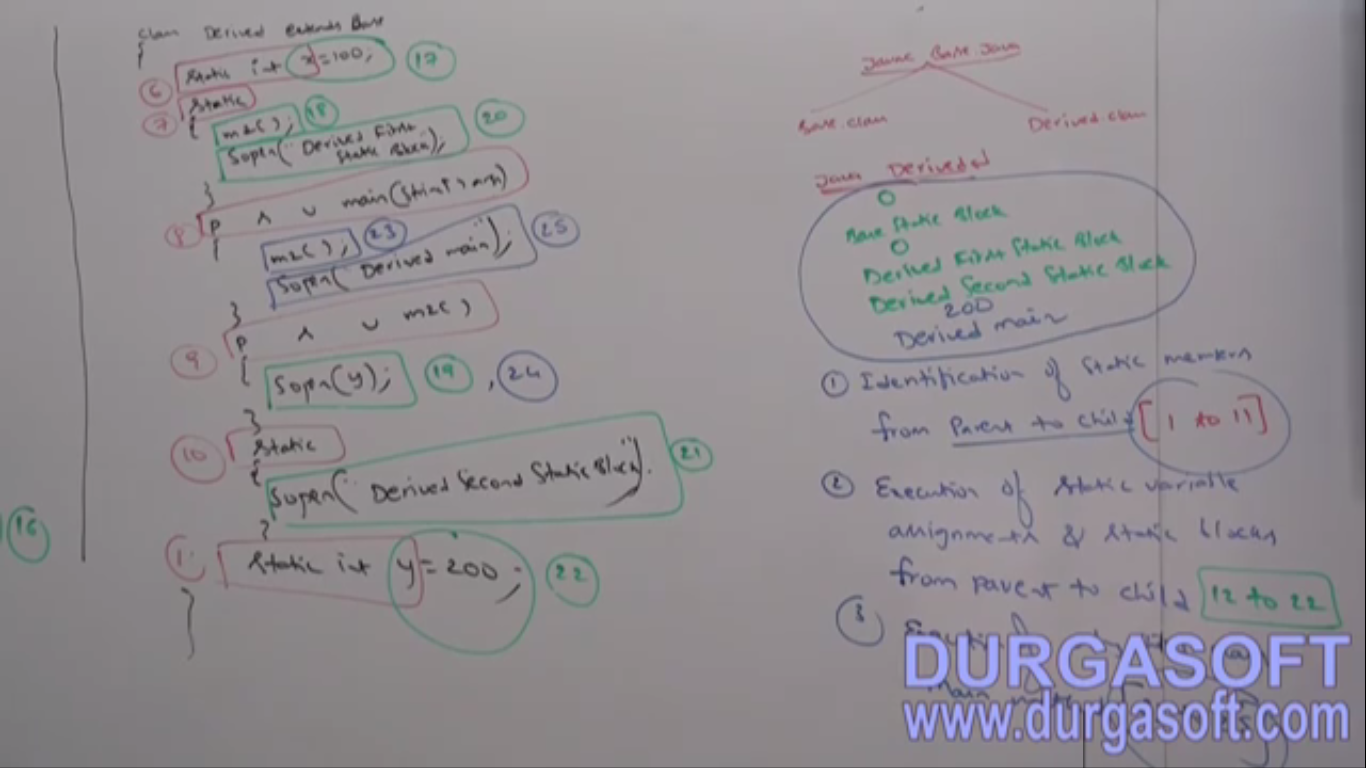 class Derived extends Base
{
⑥ static int x=100; ⑰
⑦ static
{ m2(); ⑱
Sopln("Derived First
Static Block"); ⑳
}
⑧ p ∧ v main(String[] args)
{ m2(); ㉓
Sopln("Derived main"); ㉕
}
⑨ p ∧ v m2()
{ Sopln(y); ⑲, ㉔
}
⑩ static
{
Sopln("Derived Second Static Block"). ㉑
}
static int y=200; ㉒
}
⑯
javac Base.java
Base.class Derived.class
java Derived
0
Base Static Block
0
Derived First Static Block
Derived Second Static Block
200
Derived main
① Identification of static members
from Parent to child [1 to 11]
② Execution of static variable
assignments & static blocks
from parent to child 12 to 22
③
main
DURGASOFT
www.durgasoft.com